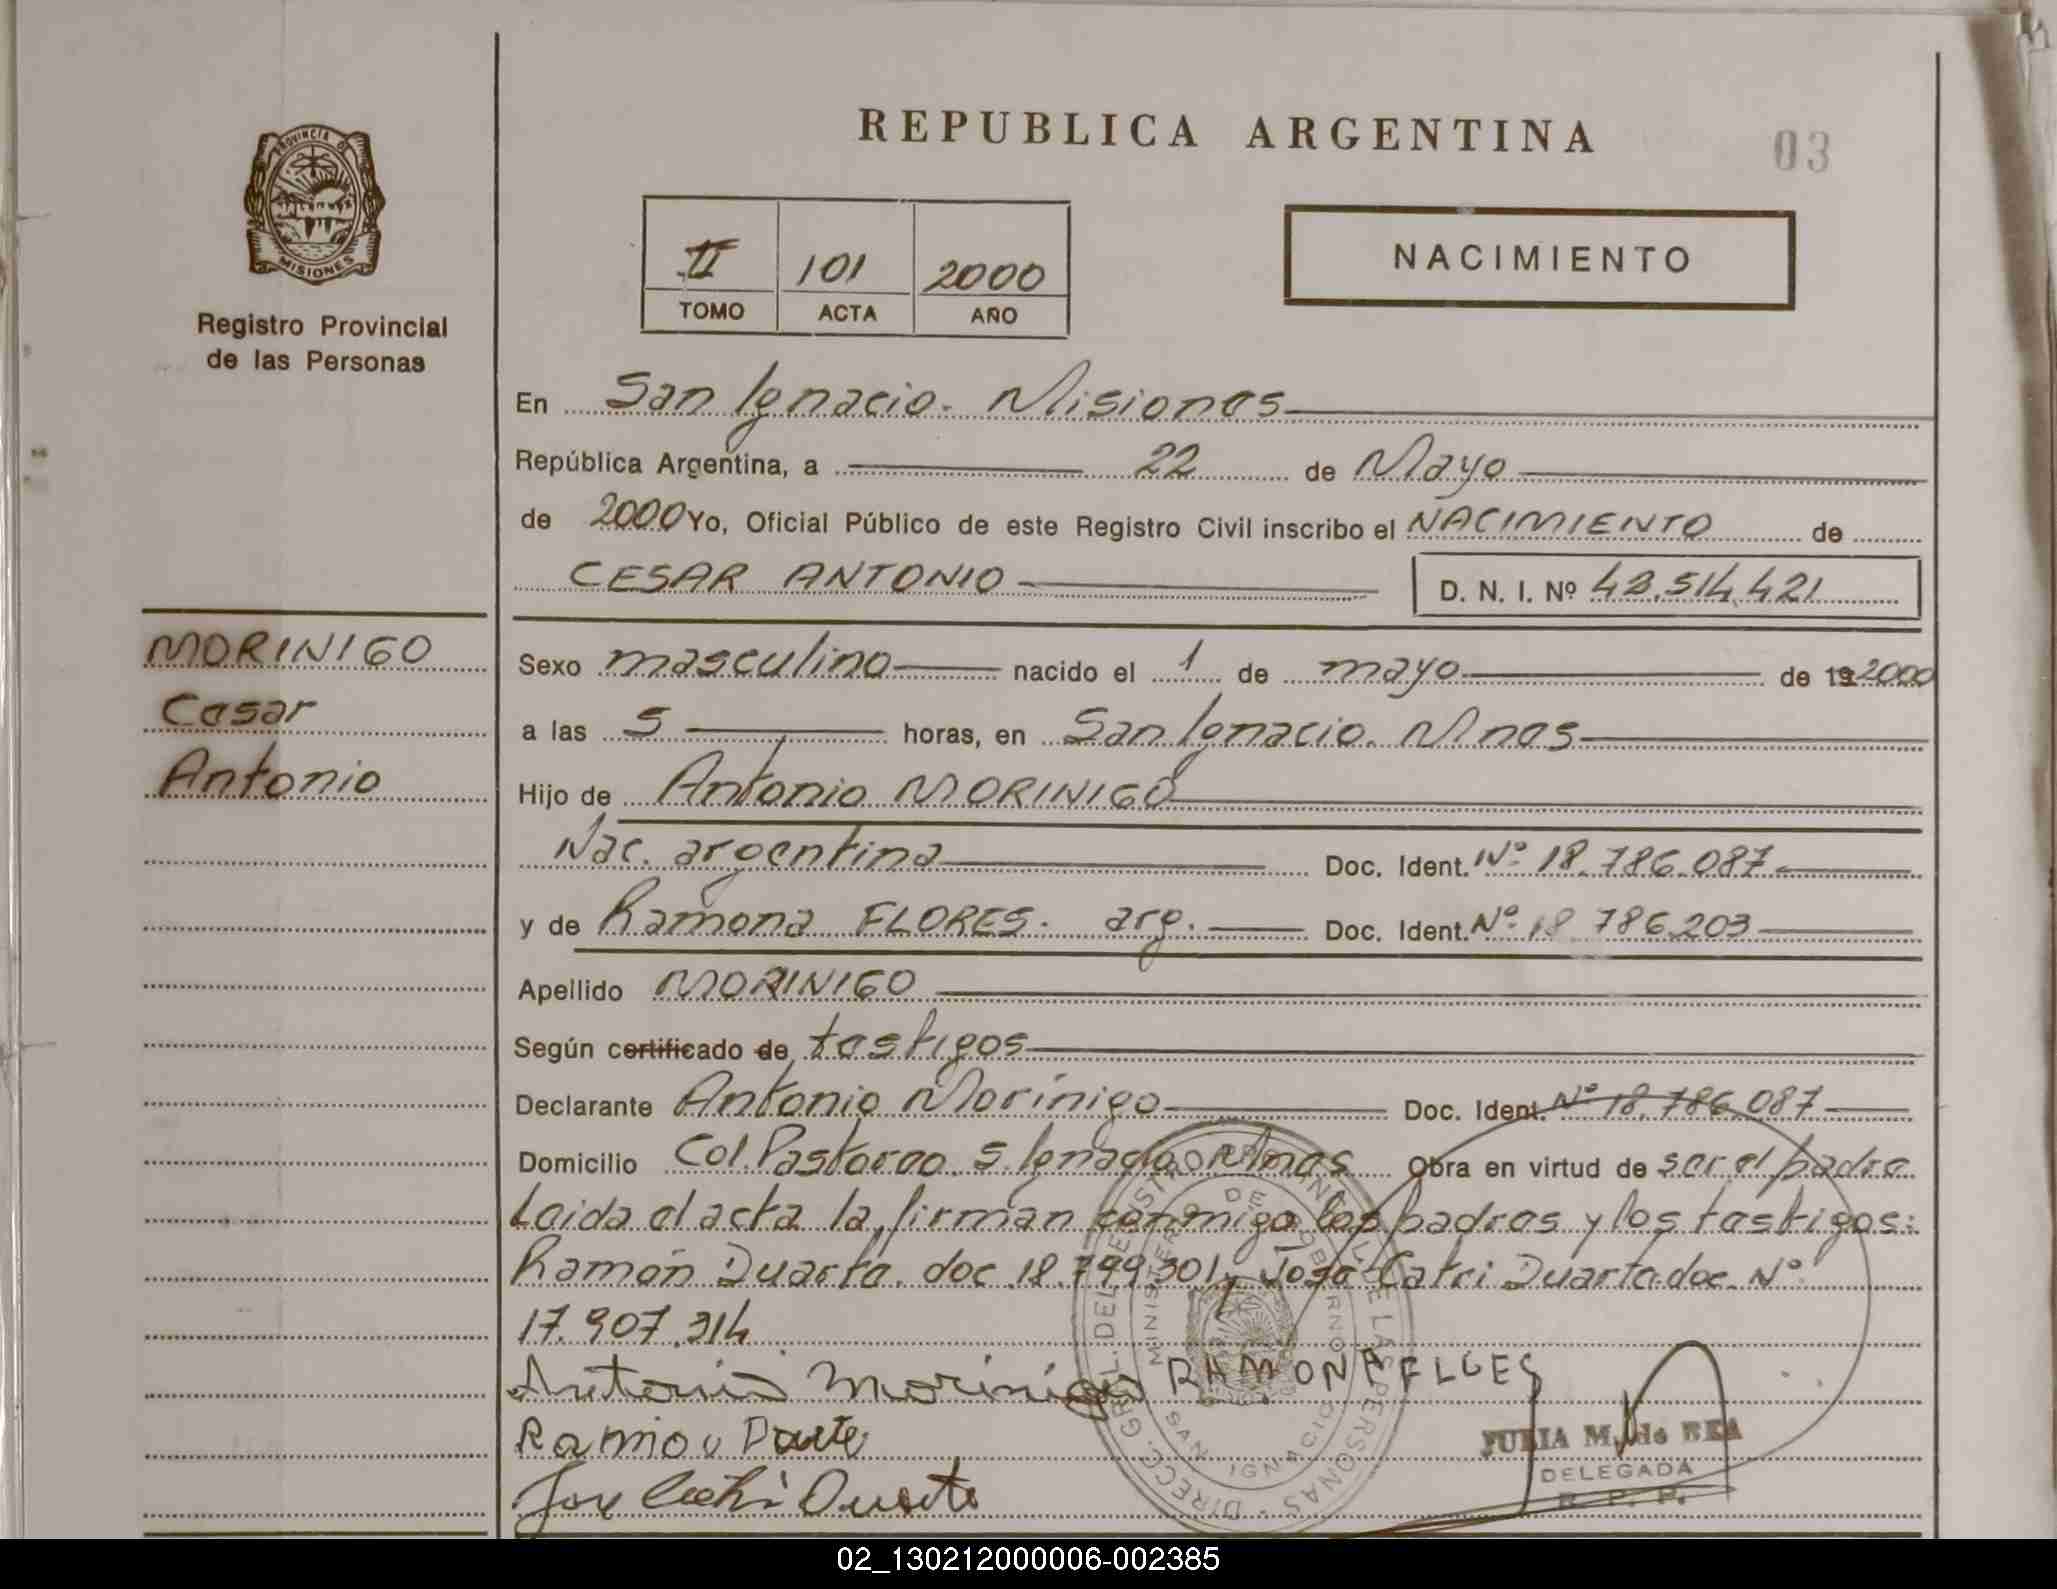 REPUBLICA ARGENTINA
03
PROVINCIA DE
MISIONES
Registro Provincial
de las Personas
II 101 2000
TOMO ACTA AÑO
NACIMIENTO
En San Ignacio. Misiones
República Argentina, a 22 de Mayo
de 2000 Yo, Oficial Público de este Registro Civil inscribo el NACIMIENTO de
CESAR ANTONIO D. N. I. Nº 42.514.421
MORINIGO
Cesar
Antonio
Sexo masculino nacido el 1 de mayo de 19 2000
a las 5 horas, en San Ignacio. Mnes
Hijo de Antonio MORINIGO
Nac. argentina Doc. Ident. Nº 18.786.087
y de Ramona FLORES. arg. Doc. Ident. Nº 18 786.203
Apellido MORINIGO
Según certificado de testigos
Declarante Antonio Morínigo Doc. Ident. Nº 18.786.087
Domicilio Col. Pastoreo. S. Ignacio. Mnes Obra en virtud de ser el padre
Leida el acta la firman conmigo los padres y los testigos:
Ramón Duarte. doc 18.799.301 y José Catri Duarte doc Nº
17.907.314
Antonio Morinigo RAMONA FLOES
Ramou Darte
Jose Catri Duarte
DIRECC. GRAL. DEL REGISTRO PROVINCIAL DE LAS PERSONAS
MINISTERIO DE GOBIERNO
SAN IGNACIO
JULIA M. de REA
DELEGADA
R. P. P.
02_130212000006-002385